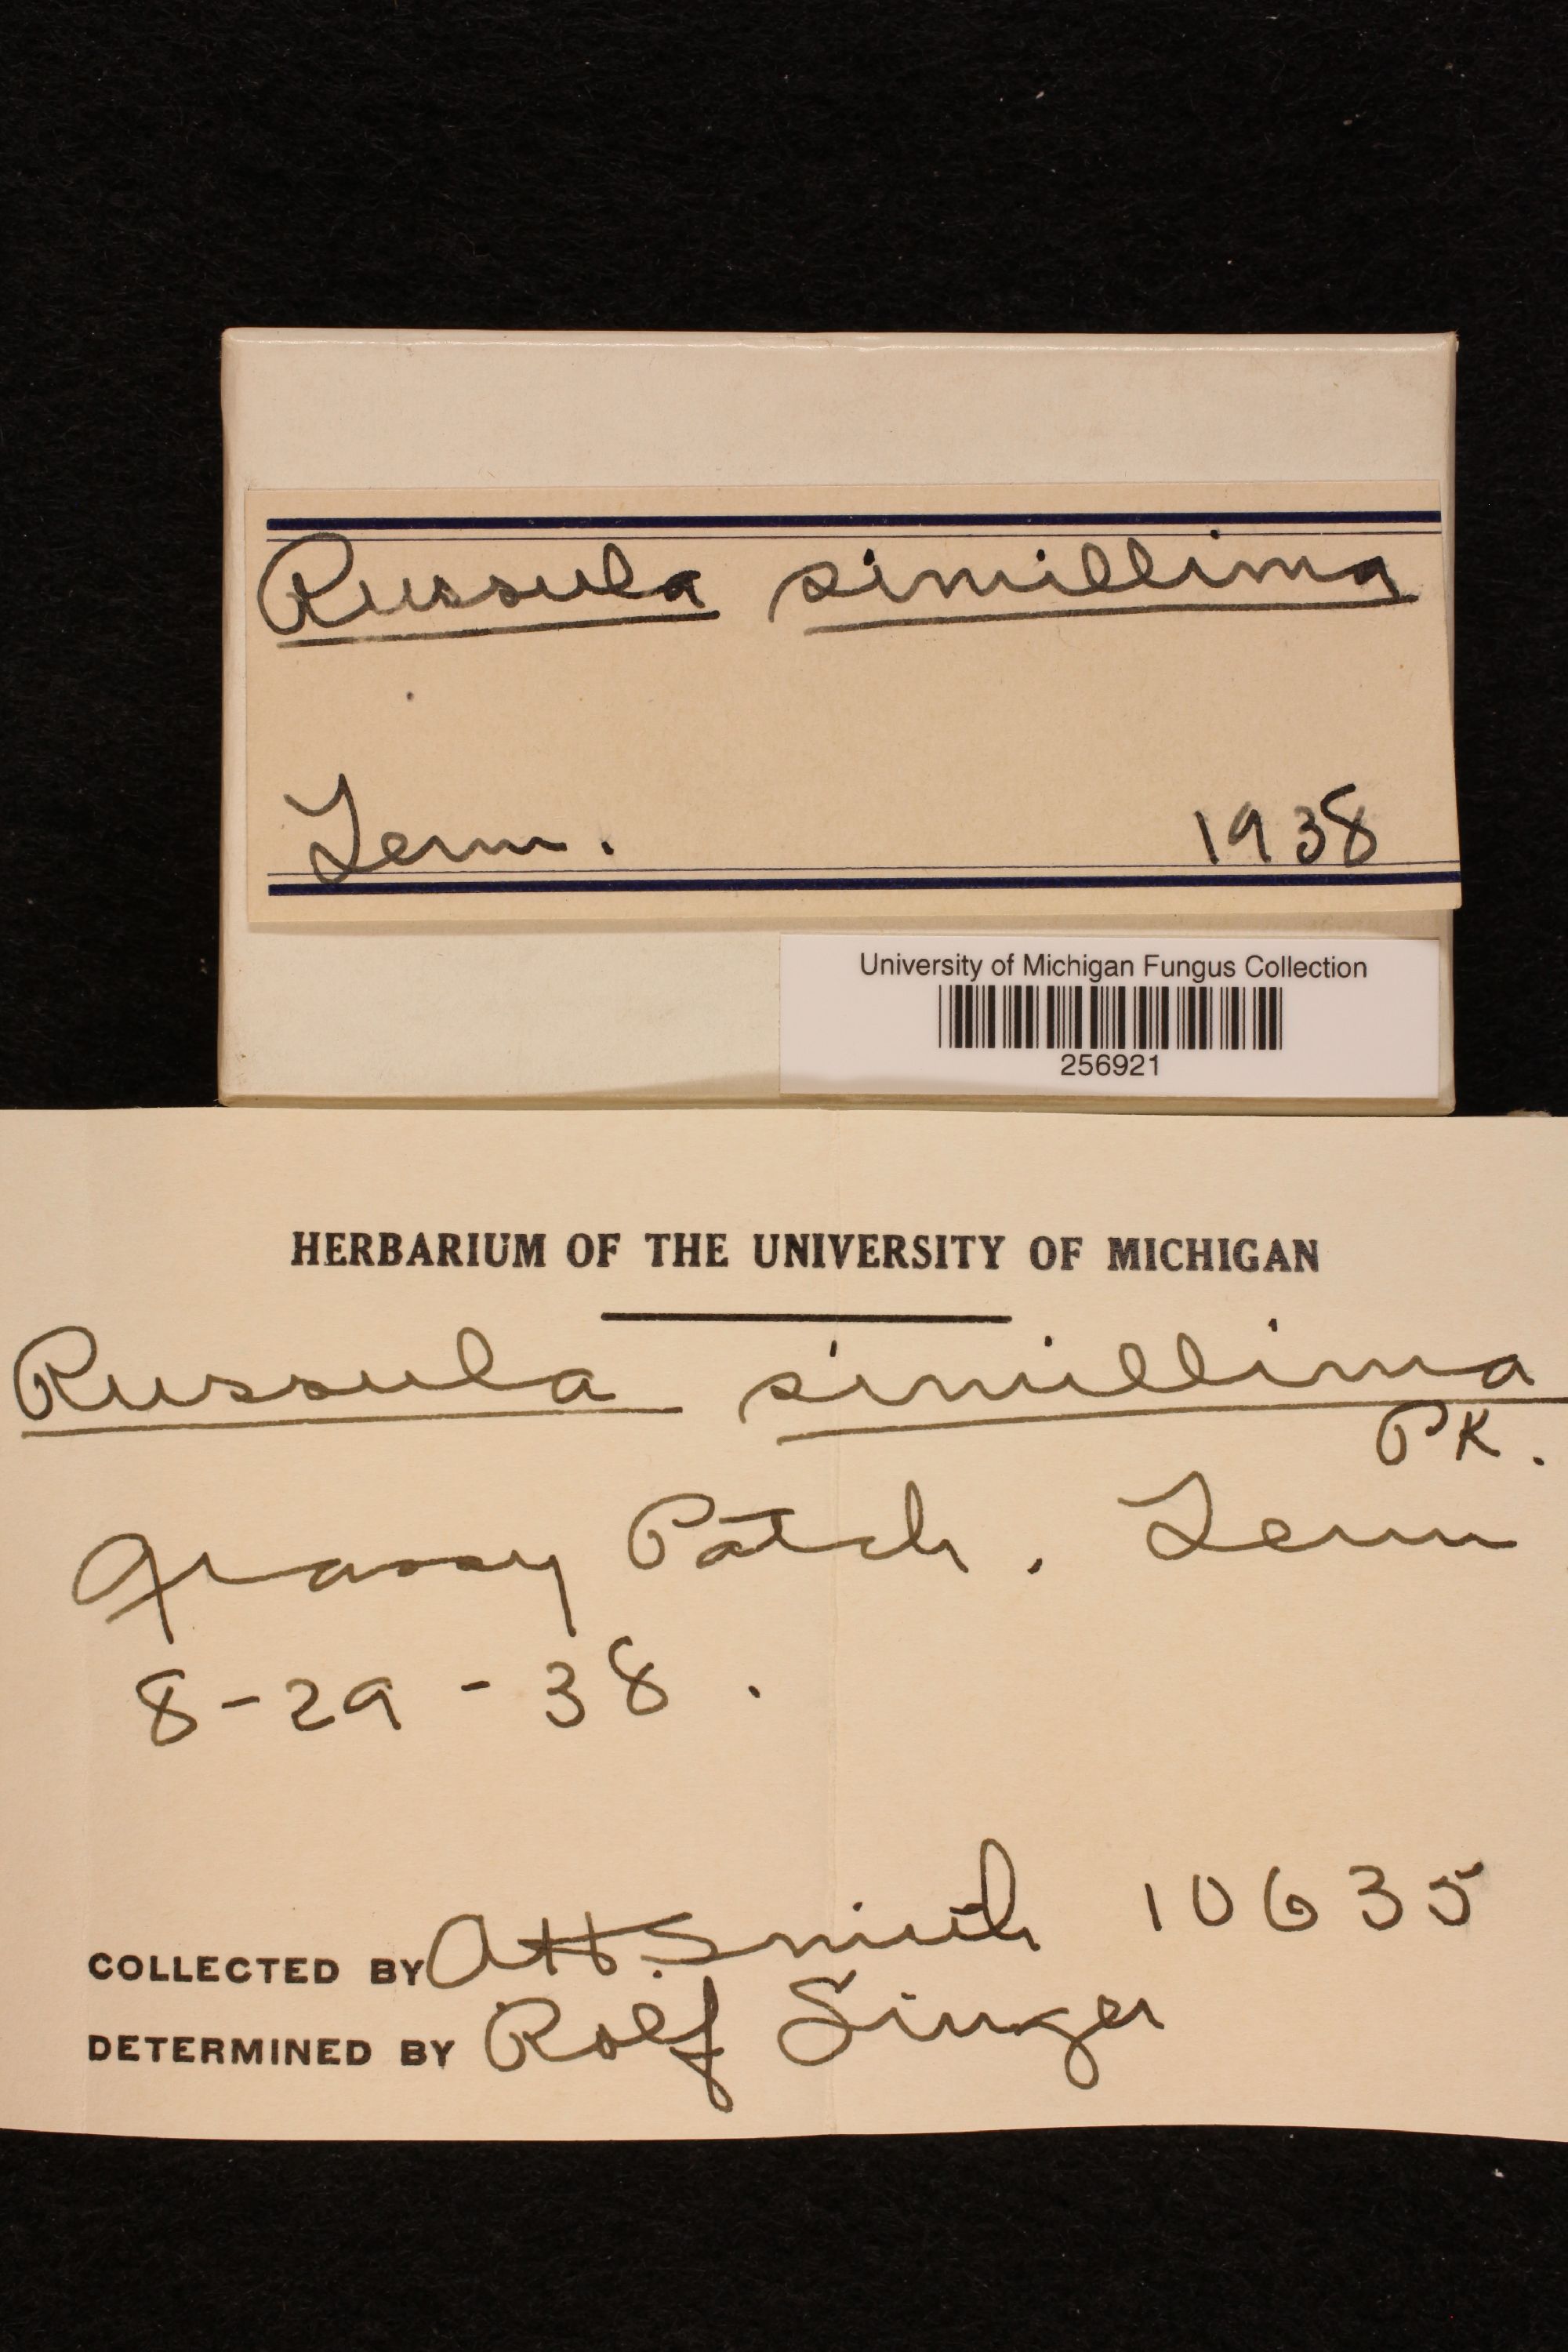 Russula simillima
Tenn. 1938
University of Michigan Fungus Collection
256921
HERBARIUM OF THE UNIVERSITY OF MICHIGAN
Russula simillima
PK.
Grassy Patch. Tenn
8-29-38.
COLLECTED BY AH.Smith 10635
DETERMINED BY Rolf Singer